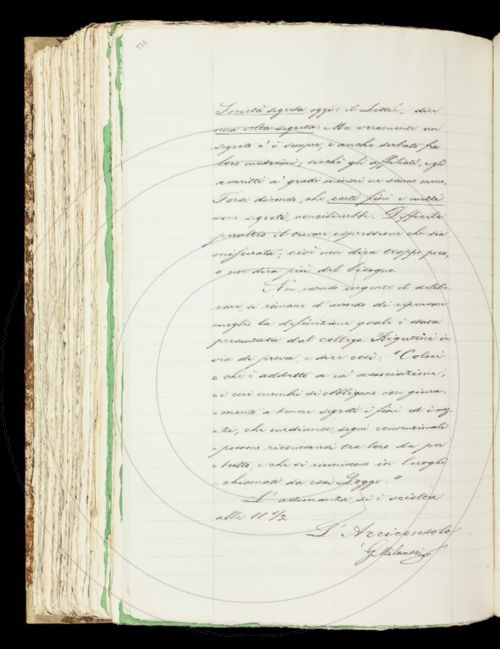 716
Società segreta oggi: il Littré, dice
una volta segreta. Ma veramente un
segreto c'è sempre, e anche serbato fra
loro medesimi; sicchè gli affiliati, e gli
ascritti a' gradi minori ne sanno meno.
Forse dicendo, che certi fini e mezzi
sono segreti, concilierebbe. Difficile
peraltro il trovare espressione che sia
misurata; cioè non dica troppo poco,
e non dica più del bisogno.
Non essendo urgente il delibe-
rare, si rimane d'accordo di
meglio la definizione quale è stata
presentata dal collega Rigutini in
via di prova, e dice così: "Colui
che è addetto a un' associazione,
i cui membri si obbligano con giura-
mento a tenere segreti i fini di
che mediante segni convenzionali
possono riconoscersi tra loro da per
tutto, e che si riuniscono in luoghi
chiamati da essi Logge."
L'adunanza si è sciolta
alle 11 1/2
L'Arciconsolo